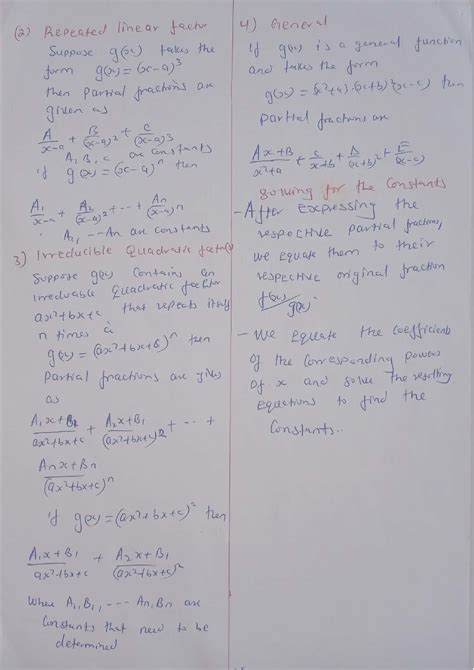 (2) Repeated linear factor
Suppose g(x) takes the
form g(x) = (x-a)³
then partial fractions are
given as
A/(x-a) + B/(x-a)² + C/(x-a)³
A, B, C are constants
if g(x) = (x-a)ⁿ then
A₁/(x-a) + A₂/(x-a)² + --- + An/(x-a)ⁿ
A₁, --- An are constants
3) Irreducible Quadratic factor
Suppose g(x) contains an
irreducible Quadratic factor
ax²+bx+c that repeats itself
n times i.
g(x) = (ax²+bx+c)ⁿ then
partial fractions are given
as
(A₁x+B₁)/(ax²+bx+c) + (A₂x+B₁)/(ax²+bx+c)² + --- +
(Anx+Bn)/(ax²+bx+c)ⁿ
if g(x) = (ax²+bx+c)² then
(A₁x+B₁)/(ax²+bx+c) + (A₂x+B₁)/(ax²+bx+c)²
Where A₁, B₁, --- An, Bn are
constants that need to be
determined
4) General
If g(x) is a general function
and takes the form
g(x) = (x²+a)·(x+b)²(x-c) then
partial fractions are
(Ax+B)/(x²+a) + C/(x+b) + D/(x+b)² + E/(x-c)
Solving for the Constants
- After Expressing the
respective partial fractions,
we equate them to their
respective original fraction
f(x)/g(x).
- We Equate the coefficients
of the corresponding powers
of x and solve the resulting
equations to find the
Constants..